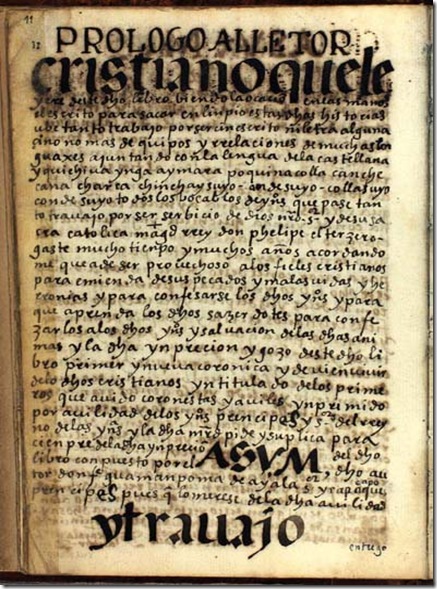 11
12
PROLOGO AL LETOR
cristiano que le
yere deste dho libro biendo la ocacion en las manos
escrito para sacar en linpio estas dhas historias
ube tanto trabajo por ser cin escrito ni letra alguna
cino no mas de quipos y rrelaciones de muchas len
guaxes ajuntando con la lengua de la castellana
y quichiua ynga aymara poquina colla canche
cana charca chinchaysuyo andesuyo collasuyo
condesuyo todos los bocablos de yos que pase tan
to trauajo por ser serbicio de dios nro sr y de su sa
cra catolica magd rrey don phelipe el terzero
gaste mucho tienpo y muchos años acordando
me que a de ser prouechoso a los fieles cristianos
para emienda de sus pecados y malas uidas y he
rronias y para confesarse los dhos yos y para
que aprenda los dhos sazerdotes para confe
zarlos a los dhos yos y saluacion de las dhas ani
mas y la dha ynprecion y gozo deste dho li
bro primer y nueua coronica y de uien uiuir
de los dhos cristianos yntitulado de los prime
ros que auido coronistas y auiles ynprimido
por auilidad de los yos prencipes y srs del rrey
no de las yos y la dha mrd pide y suplica para
cienpre de la dha ynprecio del dho
libro conpuesto por el ASVM dho au
tor don fe guaman poma de ayala sr y capac
prencipes pues que lo merese de la dha auilidad
y trauajo